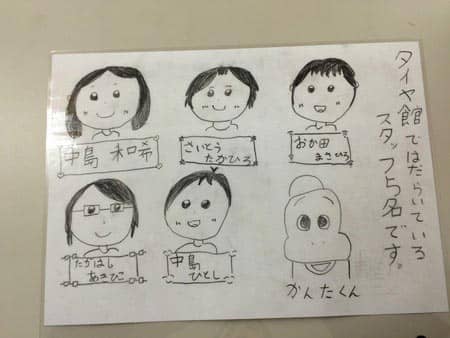 タイヤ館ではたらいている
スタッフ5名です。
中島 和希
さいとう
たかひろ
おか田
まさひろ
たかはし
あきひこ
中島
ひとし
かんたくん